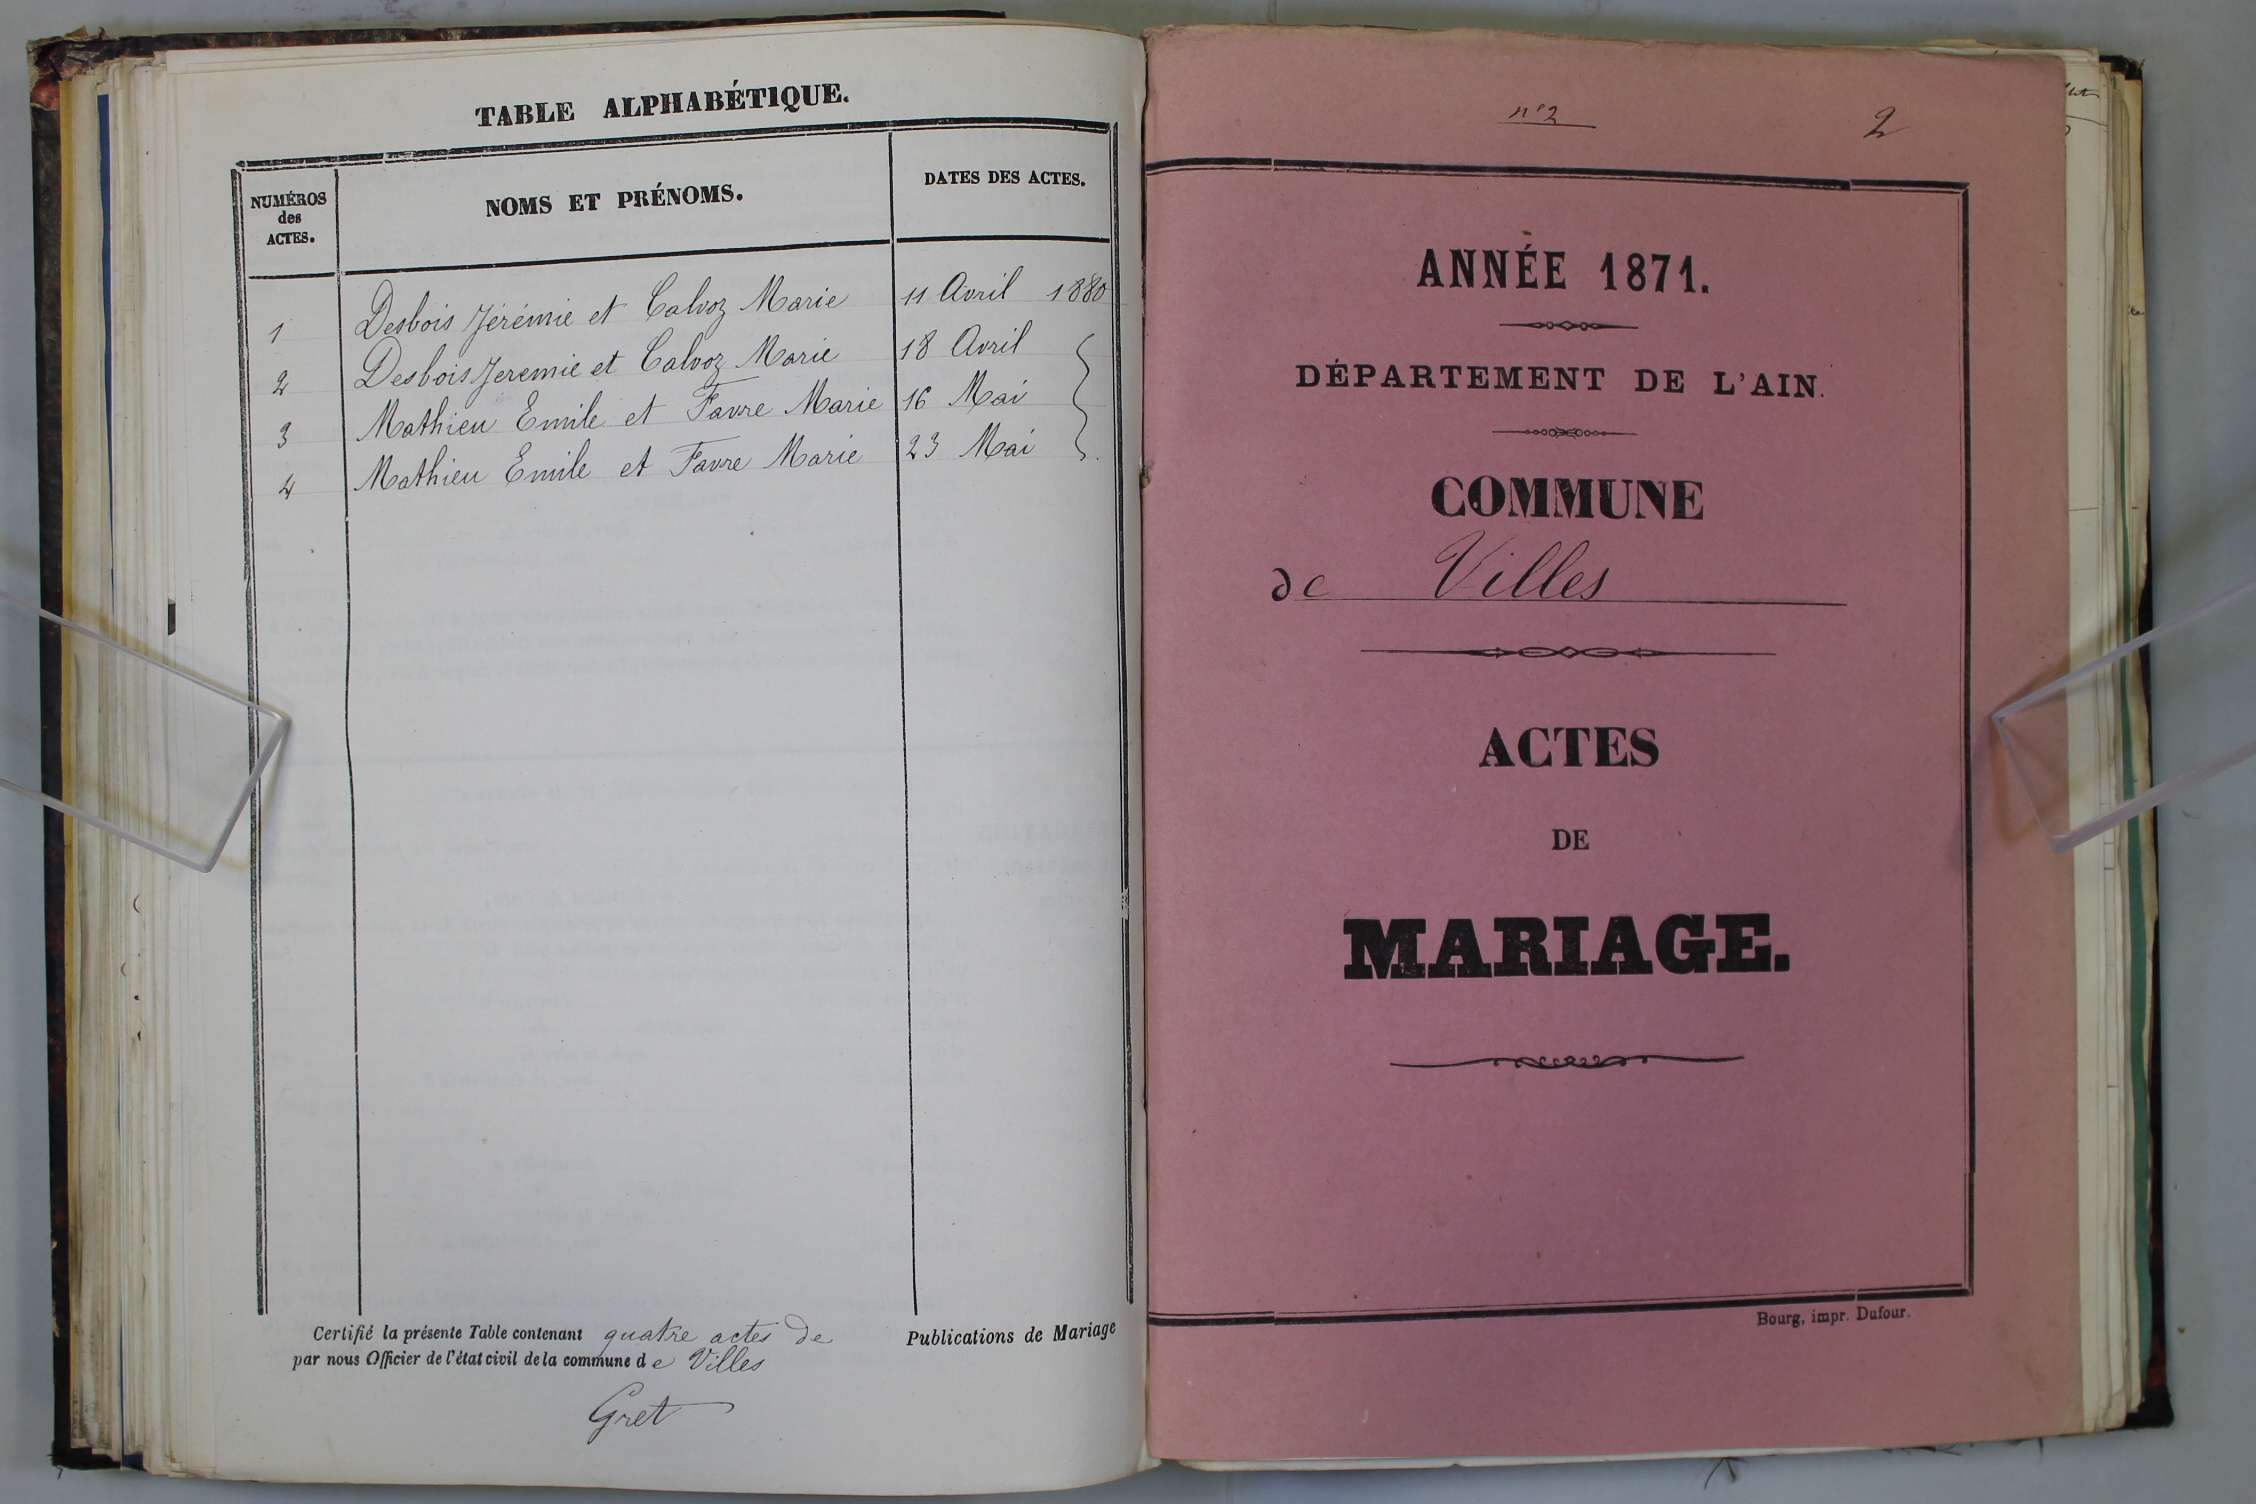 TABLE ALPHABÉTIQUE.
NUMÉROS
des
ACTES.
NOMS ET PRÉNOMS.
DATES DES ACTES.
1 Desbois Jérémie et Calvoz Marie 11 Avril 1880
2 Desbois Jeremie et Calvoz Marie 18 Avril
3 Mathieu Emile et Favre Marie 16 Mai
4 Mathieu Emile et Favre Marie 23 Mai
Certifié la présente Table contenant quatre actes de Publications de Mariage
par nous Officier de l'état civil de la commune de Villes
Gret
n° 2
2
ANNÉE 1871.
DÉPARTEMENT DE L'AIN.
COMMUNE
de Villes
ACTES
DE
MARIAGE.
Bourg, impr. Dufour.